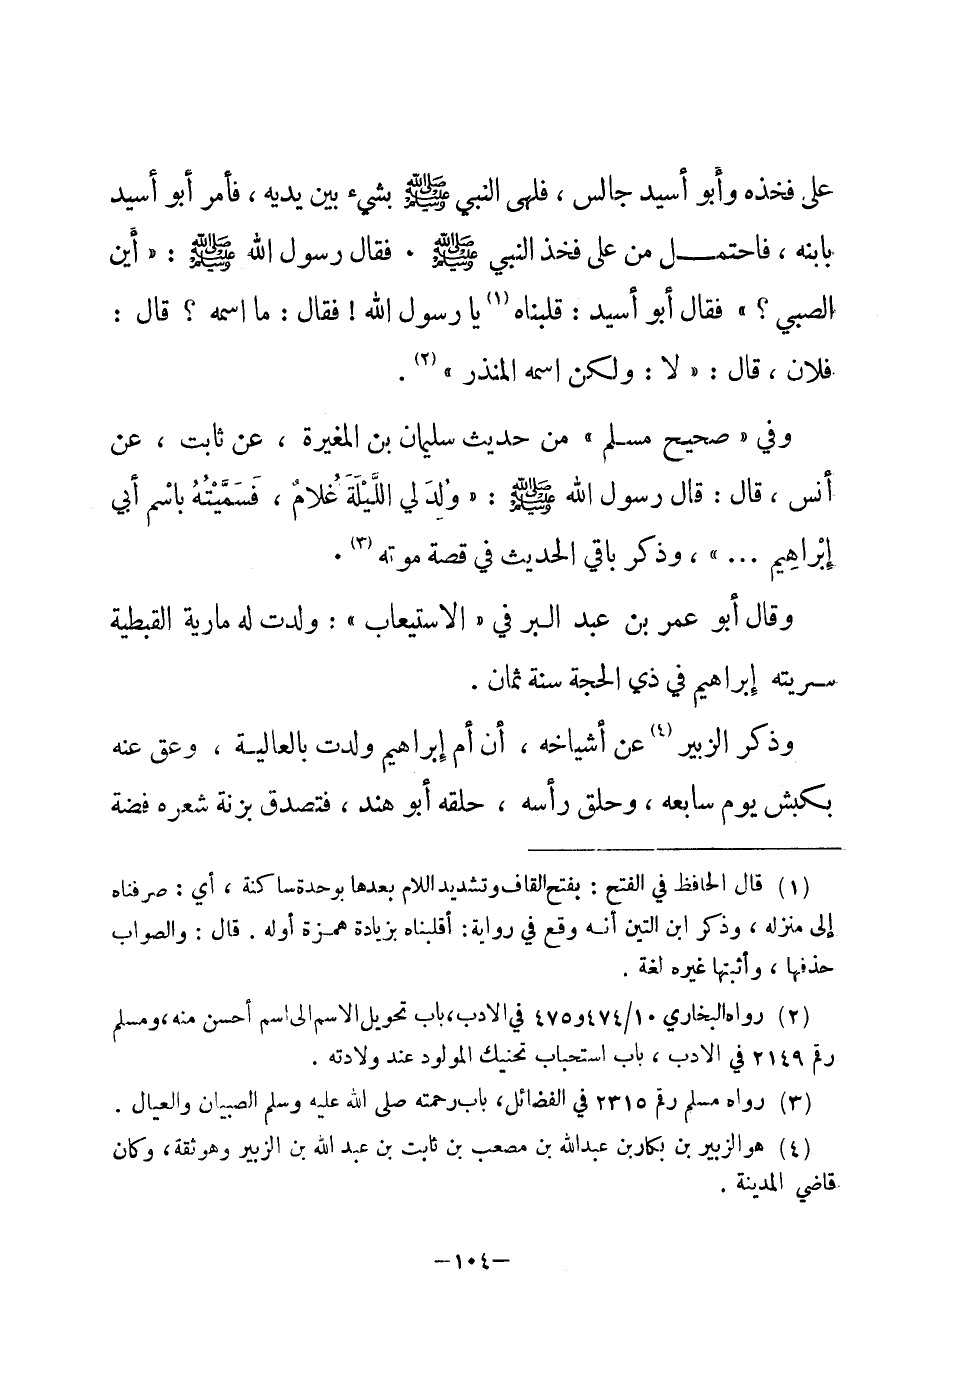 على فخذه وأبو أسيد جالس ، فلهى النبي ﷺ بشيء بين يديه ، فأمر أبو أسيد
بابنه ، فاحتمــل من على فخذ النبي ﷺ . فقال رسول الله ﷺ : « أين
الصبي ؟ » فقال أبو أسيد : قلبناه (١) يا رسول الله ! فقال : ما اسمه ؟ قال :
فلان ، قال : « لا : ولكن اسمه المنذر » (٢) .
وفي « صحيح مسلم » من حديث سليمان بن المغيرة ، عن ثابت ، عن
أنس ، قال : قال رسول الله ﷺ : « وُلِدَ لي اللَّيْلَةَ غُلامٌ ، فَسَمَّيْتُهُ باسْم أبي
إبْراهِيم ... » ، وذكر باقي الحديث في قصة موته (٣) .
وقال أبو عمر بن عبد البر في « الاستيعاب » : ولدت له مارية القبطية
سريته إبراهيم في ذي الحجة سنة ثمان .
وذكر الزبير (٤) عن أشياخه ، أن أم إبراهيم ولدت بالعالية ، وعق عنه
بكبش يوم سابعه ، وحلق رأسه ، حلقه أبو هند ، فتصدق بزنة شعره فضة
(١) قال الحافظ في الفتح : بفتح القاف وتشديد اللام بعدها بوحدة ساكنة ، أي : صرفناه
إلى منزله ، وذكر ابن التين أنه وقع في رواية : أقلبناه بزيادة همزة أوله . قال : والصواب
حذفها ، وأثبتها غيره لغة .
(٢) رواه البخاري ٤٧٤/١٠و٤٧٥ في الادب ، باب تحويل الاسم الى اسم أحسن منه ، ومسلم
رقم ٢١٤٩ في الادب ، باب استحباب تحنيك المولود عند ولادته .
(٣) رواه مسلم رقم ٢٣١٥ في الفضائل، باب رحمته صلى الله عليه وسلم الصبيان والعيال .
(٤) هو الزبير بن بكار بن عبدالله بن مصعب بن ثابت بن عبد الله بن الزبير وهو ثقة ، وكان
قاضي المدينة .
–١٠٤–